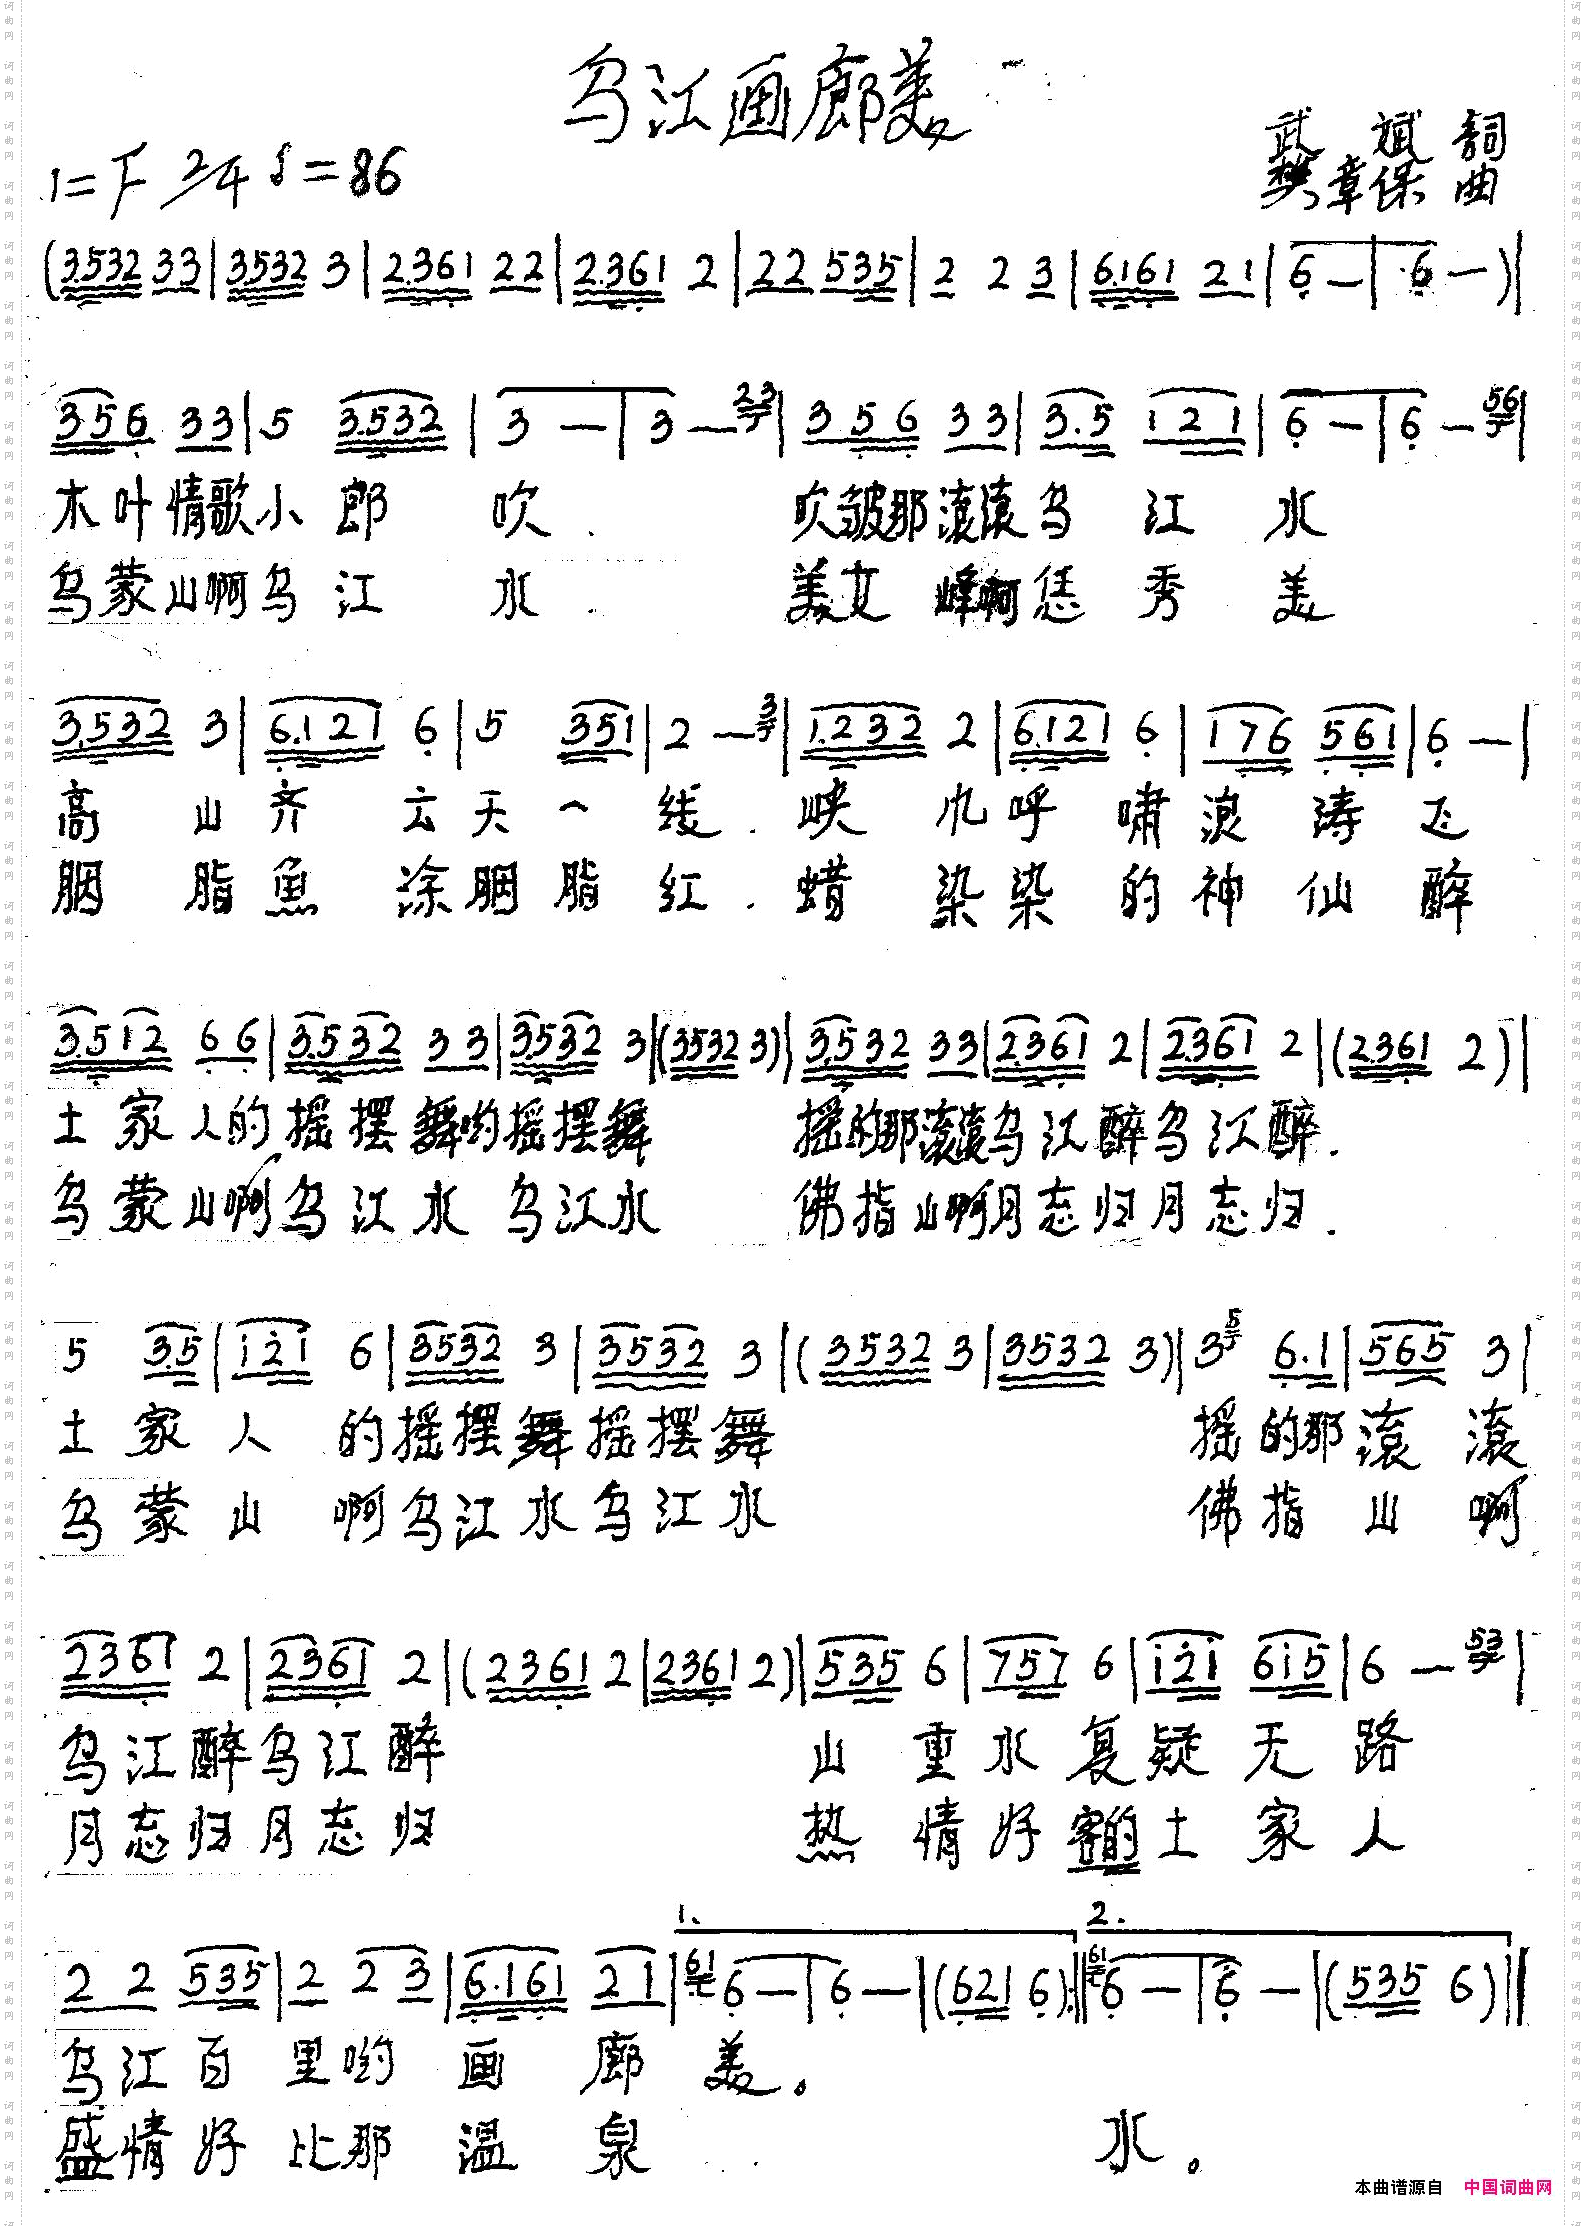 乌江画廊美
武 斌 詞
1=F 2/4 ♩=86
樊章保 曲
(3.532 33|3532 3|2.361 22|2.361 2|22 535|2 2 3|6.161 21|6 -|6 -)|
356 33|5 3.532|3 -|3 - 23|356 33|3.5 121|6 -|6 - 56|
木叶情歌小郎 吹 吹皱那滚滚乌江水
乌蒙山啊乌江 水 美女峰啊恁秀美
3.532 3|6.121 6|5 351|2 - 3|1.232 2|6.121 6|176 561|6 -|
高山齐云天一线 峡九呼啸浪涛飞
胭脂魚涂胭脂红 蜡染染的神仙醉
3.512 66|3.532 33|3.532 3|(3532 3)|3.532 33|2.361 2|2.361 2|(2.361 2)|
土家人的摇摆舞哟摇摆舞 摇的那滚滚乌江醉乌江醉
乌蒙山啊乌江水 乌江水 佛指山啊月忘归月忘归
5 3.5|121 6|3532 3|3532 3|(3532 3|3532 3)|3 5 6.1|565 3|
土家人的摇摆舞摇摆舞 摇的那滚滚
乌蒙山啊乌江水乌江水 佛指山啊
2361 2|2361 2|(2361 2|2361 2)|535 6|757 6|121 615|6 - 53|
乌江醉乌江醉 山重水复疑无路
月忘归月忘归 热情好客的土家人
1. 2.
22 535|2 2 3|6.161 21|61 6 -|6 -|(621 6):||61 6 -|6 -|(535 6)||
乌江百里哟画廊美。
盛情好比那温泉 水。
本曲谱源自 中国词曲网